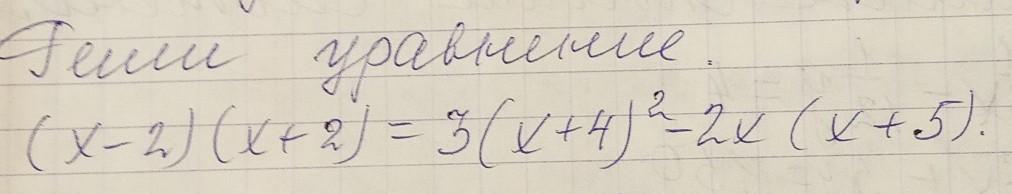 Реши уравнение.
(x-2)(x+2)=3(x+4)²-2x(x+5).